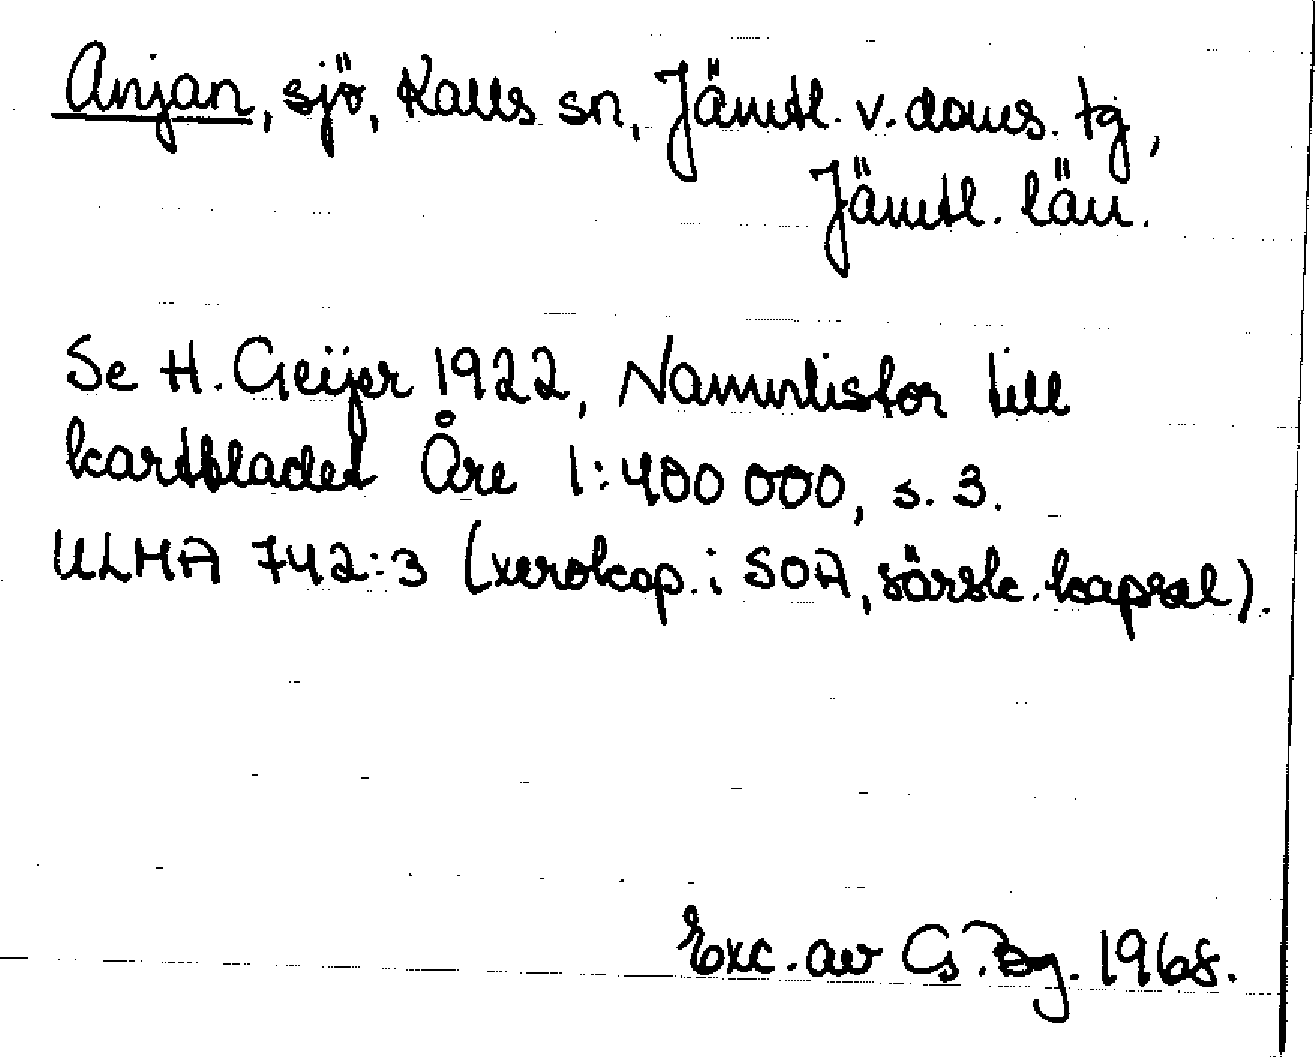 Anjan, sjö, Kalls sn, Jämtl. v. doms. tg,
Jämtl. län.
Se H. Geijer 1922, Namnlistor till
kartbladet Åre 1:400 000, s. 3.
ULMA 742:3 (xerokop. i SOA, särsk. kapsel).
Exc. av G. Bg. 1968.